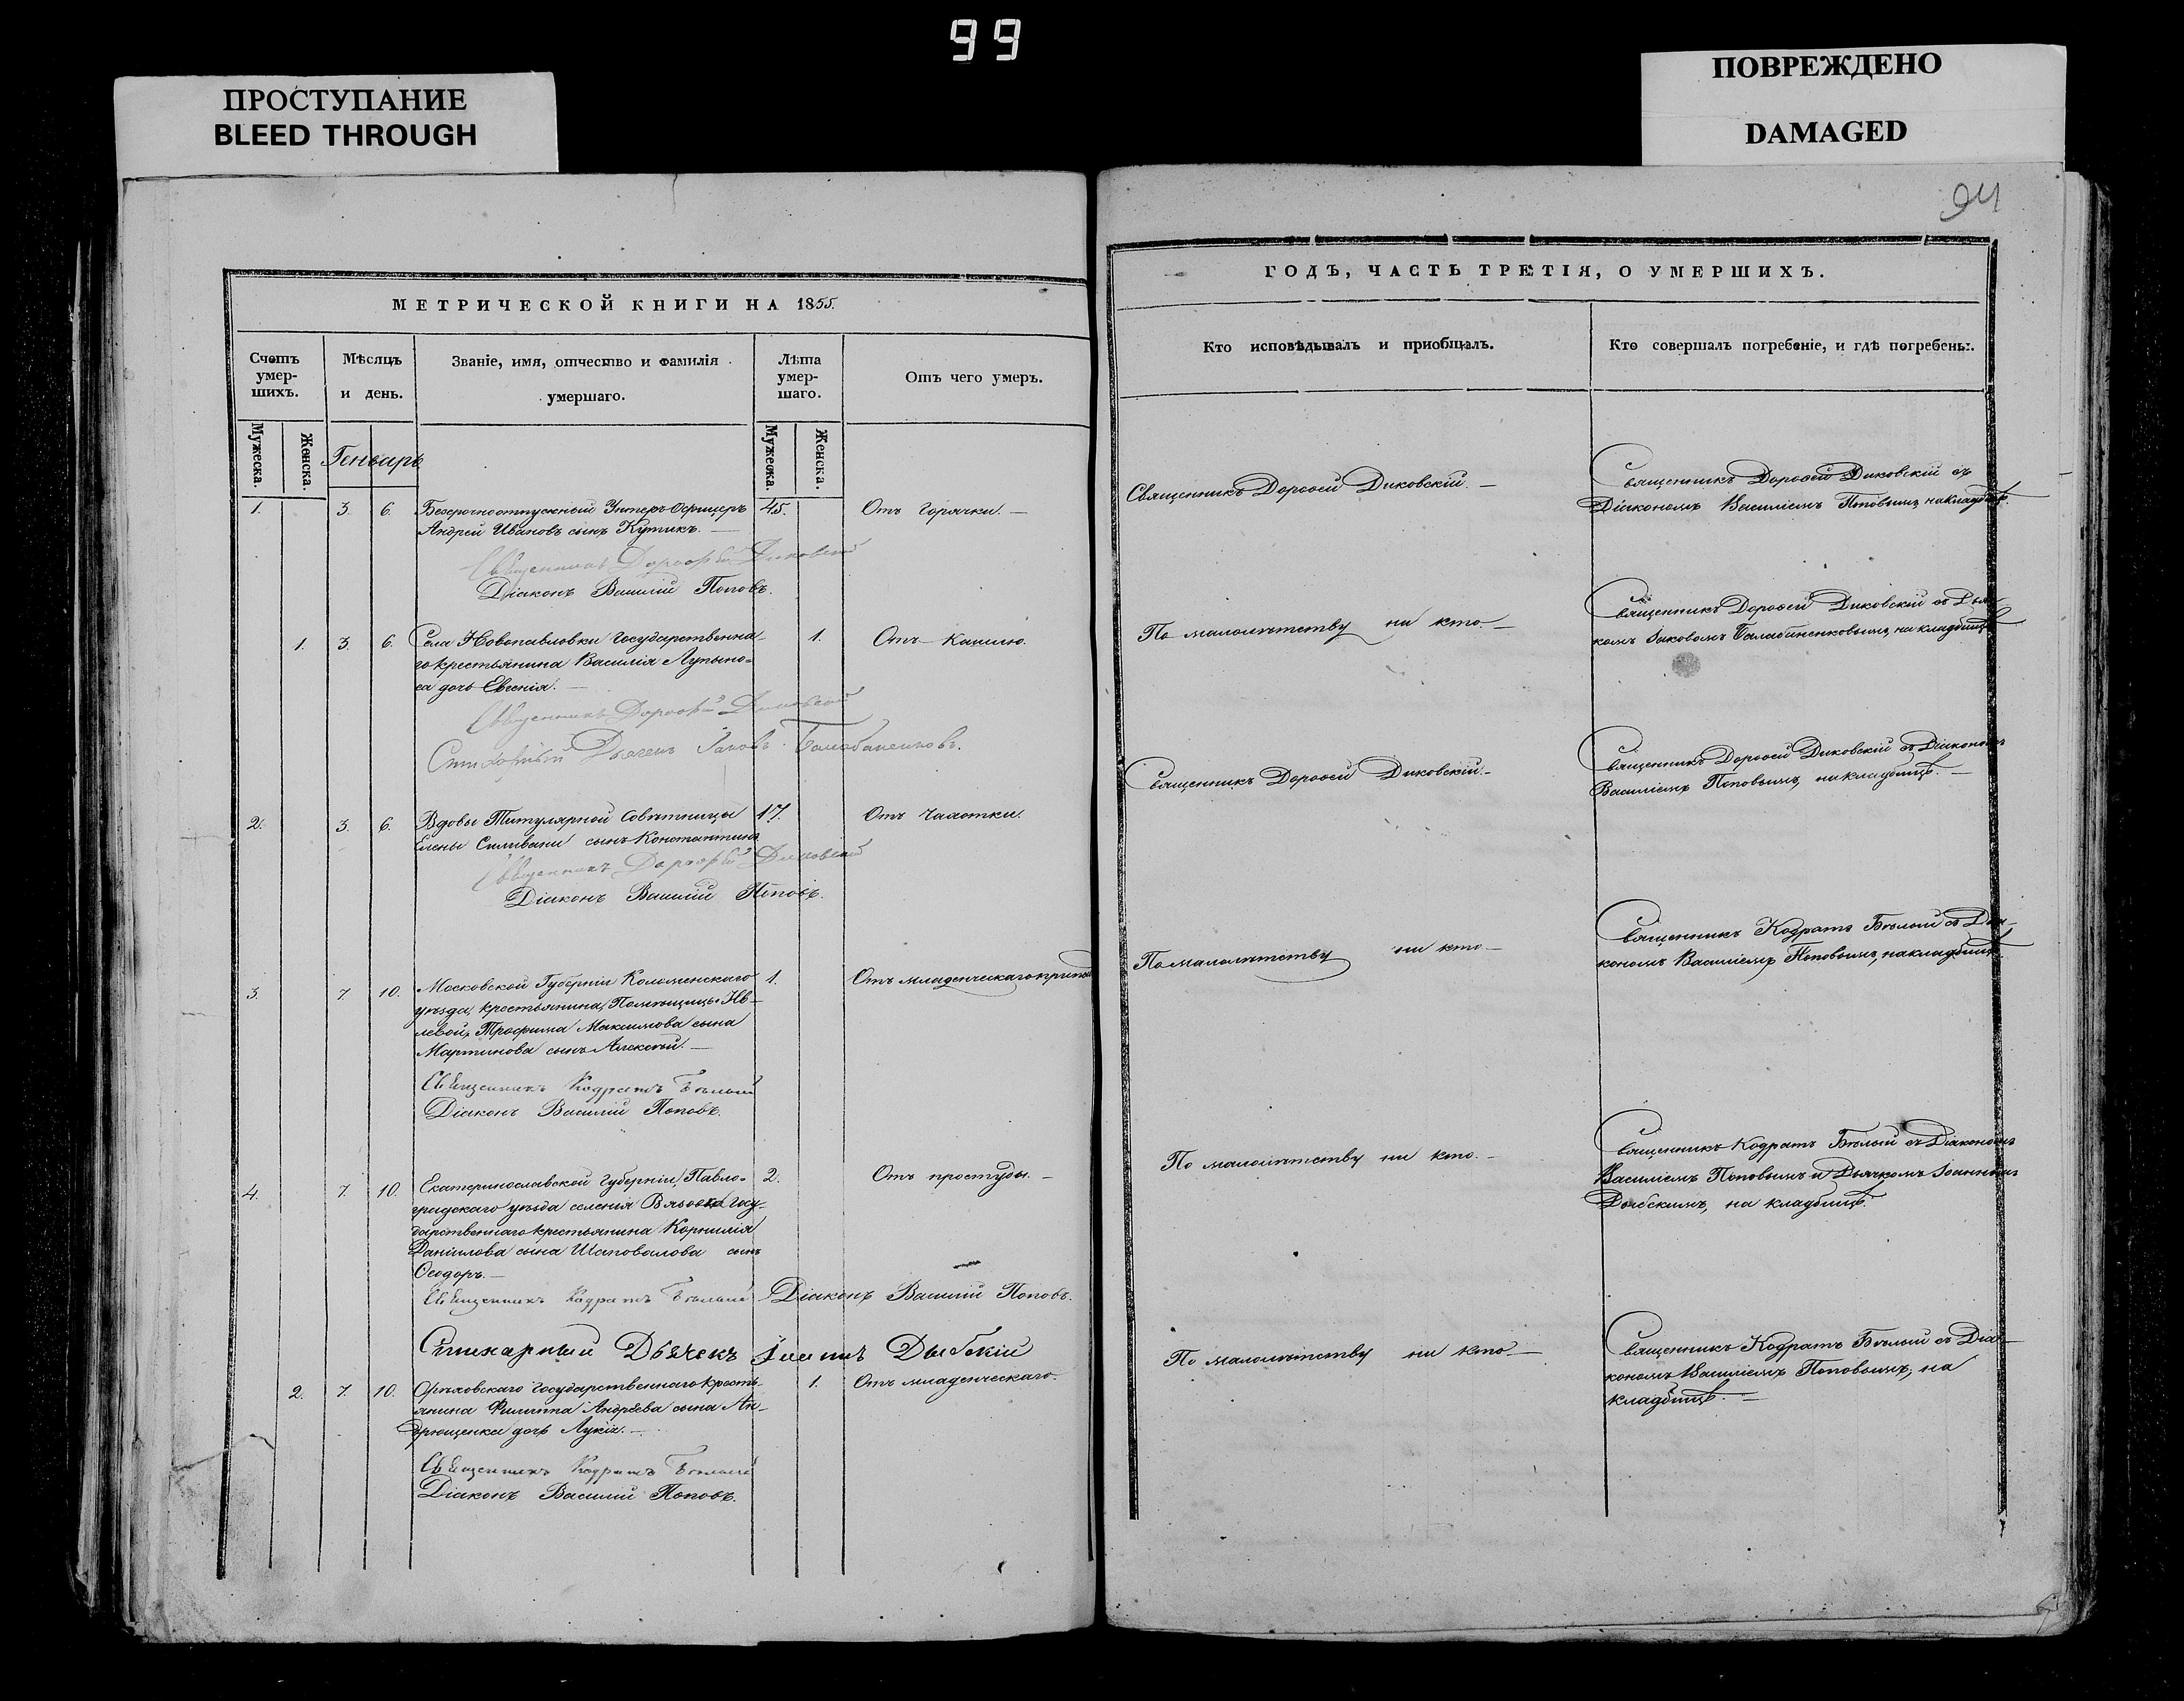 99
ПРОСТУПАНИЕ
BLEED THROUGH
ПОВРЕЖДЕНО
DAMAGED
94
МЕТРИЧЕСКОЙ КНИГИ НА 1855.
Счетъ умер-шихъ.
Мужеска.
Женска.
Мѣсяцъ и день.
Званіе, имя, отчество и фамилія умершаго.
Лѣта умер-шаго.
Мужеска.
Женска.
Отъ чего умеръ.
Генварь
1. 3. 6. Безсрочноотпускный Унтеръ-Офицеръ 45. Отъ горячки. —
Андрей Ивановъ сынъ Кутикъ. —
Священникъ Дорофей Диковскій
Діаконъ Василій Поповъ.
1. 3. 6. Села Новопавловки Государственна- 1. Отъ Кашлю.
го крестьянина Василія Лупыно-
са дочь Евгенія. —
Священникъ Дорофей Диковскій
Стихарный Дьячекъ Іаковъ Балабаненковъ.
2. 3. 6. Вдовы Титулярной Совѣтницы 17. Отъ Чахотки.
Елены Селивани сынъ Константинъ
Священникъ Дорофей Диковскій
Діаконъ Василій Поповъ.
3. 7. 10. Московской Губерніи Коломенскаго 1. Отъ младенческаго
уѣзда, крестьянина, Помѣщицы Ив-
левой, Трофима Максимова сына
Мартинова сынъ Алексѣй. —
Священникъ Кодратъ Бѣлый
Діаконъ Василій Поповъ.
4. 7. 10. Екатеринославской губерніи, Павло- 2. Отъ простуды. —
градскаго уѣзда селенія Госу-
дарственнаго крестьянина Корнилія
Даніилова сына Шаповалова сынъ
Ѳеодоръ. —
Священникъ Кодратъ Бѣлый Діаконъ Василій Поповъ.
Стихарный Дьячекъ Іоаннъ Дыбскій
2. 7. 10. Орѣховскаго государственнаго кресть- 1. Отъ младенческаго.
янина Филиппа Андрѣева сына Ан-
дрющенка дочь Лукія. —
Священникъ Кодратъ Бѣлый
Діаконъ Василій Поповъ.
ГОДЪ, ЧАСТЬ ТРЕТІЯ, О УМЕРШИХЪ.
Кто исповѣдывалъ и приобщалъ.
Кто совершалъ погребеніе, и гдѣ погребены.
Священникъ Дороѳей Диковскій. —
Священникъ Дороѳей Диковскій съ
Діакономъ Василіемъ Поповымъ, на кладбищѣ.
По малолѣтству ни кто. —
Священникъ Дороѳей Диковскій съ Дья-
комъ Іаковомъ Балабаненковымъ, на кладбищѣ
Священникъ Дороѳей Диковскій. —
Священникъ Дороѳей Диковскій съ Діакономъ
Василіемъ Поповымъ, на кладбищѣ. —
По малолѣтству ни кто —
Священникъ Кодратъ Бѣлый съ Діа-
кономъ Василіемъ Поповымъ, на кладбищѣ.
По малолѣтству ни кто. —
Священникъ Кодратъ Бѣлый съ Діакономъ
Василіемъ Поповымъ и Дьячкомъ Іоанномъ
Дыбскимъ, на кладбищѣ.
По малолѣтству ни кто —
Священникъ Кодратъ Бѣлый съ Діа-
кономъ Василіемъ Поповымъ, на
кладбищѣ. —